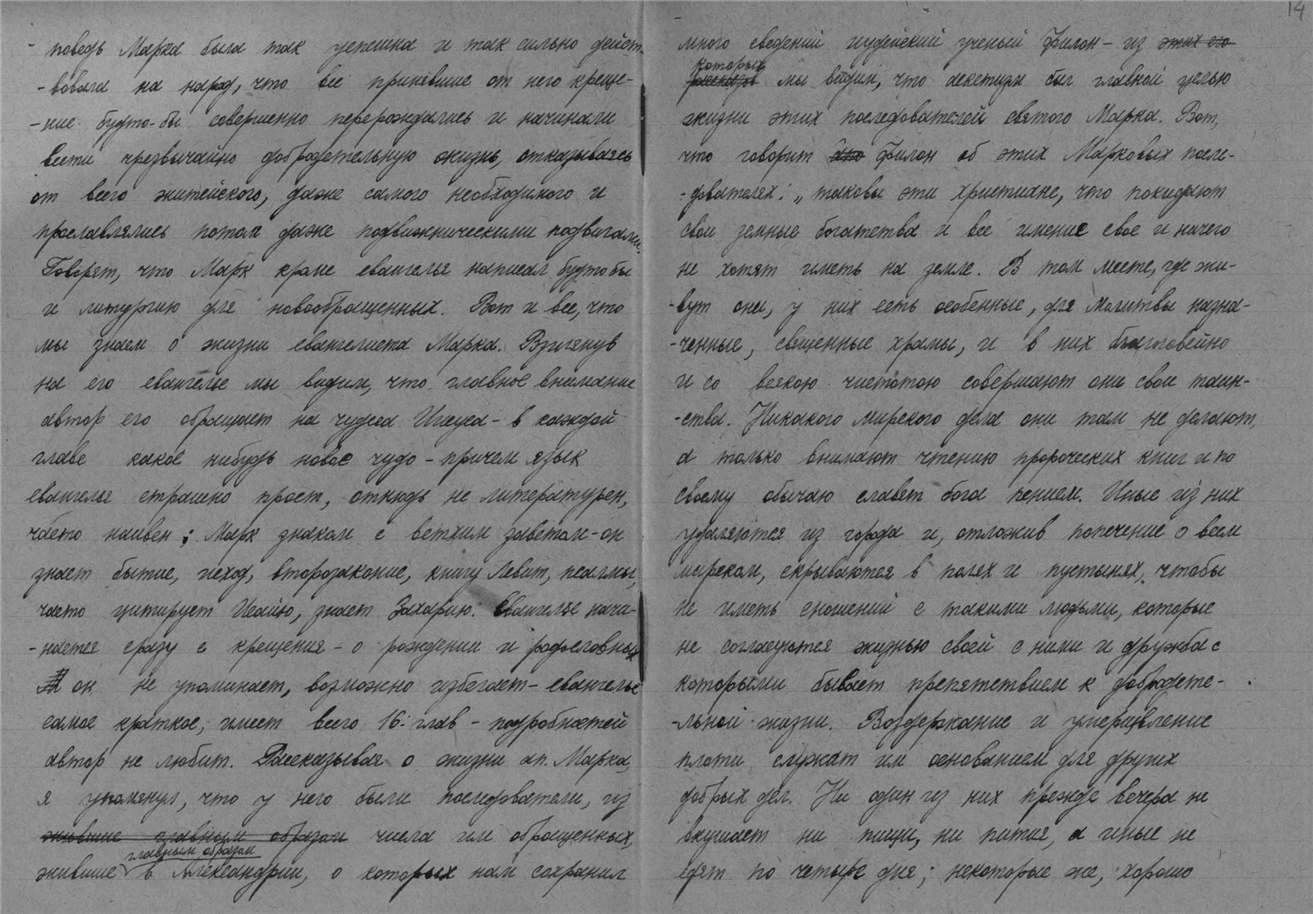 - поведь Марка была так успешна и так сильно дейст-
- вовала на народ, что все принявшие от него креще-
- ние будто-бы совершенно перерождались и начинали
вести чрезвычайно добродетельную жизнь, отказываясь
от всего житейского, даже самого необходимого и
прославлялись потом даже подвижническими подвигами.
Говорят, что Марк кроме евангелья написал будто бы
и литургию для новообращенных. Вот и все, что
мы знаем о жизни евангелиста Марка. Взглянув
на его евангелье мы видим, что главное внимание
автор его обращает на чудеса Иисуса - в каждой
главе какое нибудь новое чудо - причем язык
евангелья страшно прост, отнюдь не литературен,
часто наивен; Марк знаком с ветхим заветом - он
знает бытие, исход, второзаконие, книгу Левит, псалмы,
часто цитирует Исайю, знает Захарию. Евангелье начи-
- нается сразу с крещения - о рождении и родословных
он не упоминает, возможно избегает - евангелье
самое краткое, имеет всего 16 глав - подробностей
автор не любит. Рассказывая о жизни ап. Марка,
я упомянул, что у него были последователи, из
жившие главным образом числа им обращенных,
главным образом
жившие в Александрии, о которых нам сохранил
14
много сведений иудейский ученый Филон - из этих его
которых
мы видим, что аскетизм был главной целью
жизни этих последователей святого Марка. Вот,
что говорит Филон об этих Марковых после-
- дователях: „таковы эти христиане, что покидают
свои земные богатства и все имение свое и ничего
не хотят иметь на земле. В том месте, где жи-
- вут они, у них есть особенные, для молитвы назна-
- ченные, священные храмы, и в них благоговейно
и со всякою чистотою совершают они свои таин-
- ства. Никакого мирского дела они там не делают,
а только внимают чтению пророческих книг и по
своему обычаю славят бога пением. Иные из них
удаляются из города и, отложив попечение о всем
мирском, скрываются в полях и пустынях, чтобы
не иметь сношений с такими людьми, которые
не соглащуются жизнью своей с ними и дружба с
которыми бывает препятствием к добродете-
- льной жизни. Воздержание и умерщвление
плоти служат им основанием для других
добрых дел. Ни один из них прежде вечера не
вкушает ни пищи, ни питья, а иные не
едят по четыре дня; некоторые же, хорошо